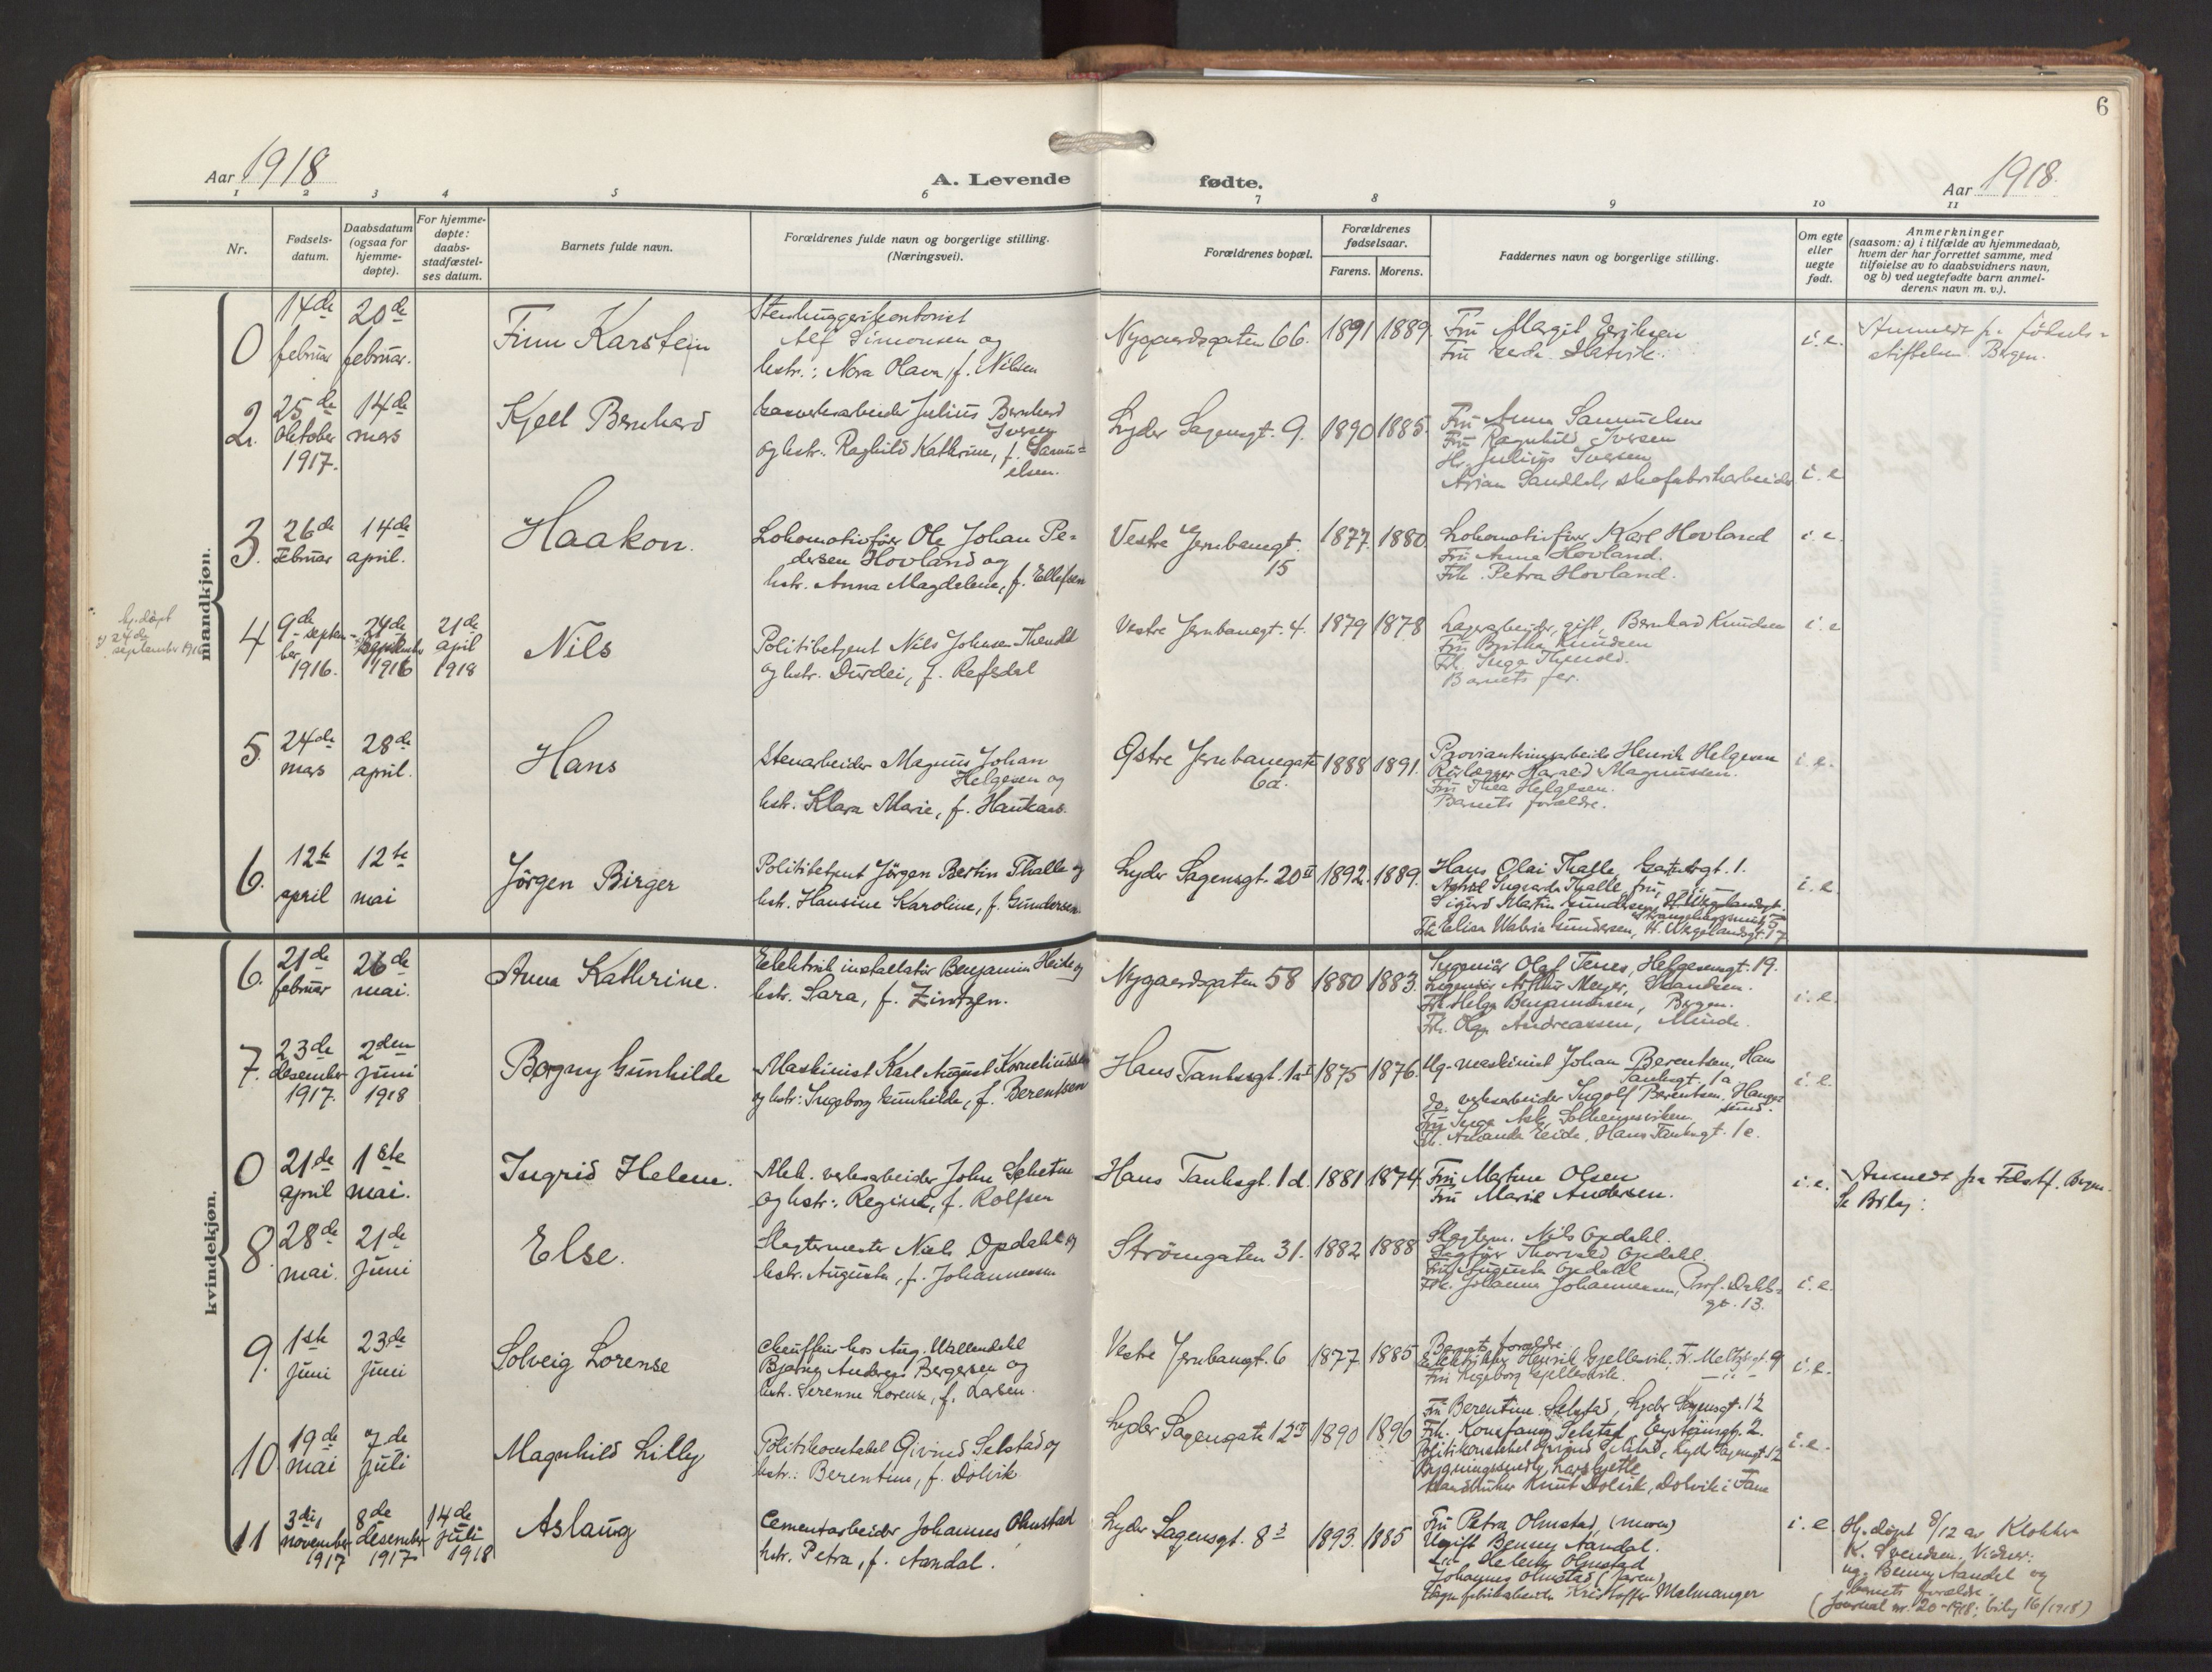 6
Aar 1918
A. Levende
fødte.
Aar 1918.
1 2 3 4 5 6 7 8 9 10 11
Nr.
Fødsels-
datum.
Daabsdatum
(ogsaa for
hjemme-
døpte).
For hjemme-
døpte:
daabs-
stadfæstel-
ses datum.
Barnets fulde navn.
Forældrenes fulde navn og borgerlige stilling.
(Næringsvei).
Forældrenes bopæl.
Forældrenes
fødselsaar.
Farens. Morens.
Faddernes navn og borgerlige stilling.
Om egte
eller
uegte
født.
Anmerkninger
(saasom: a) i tilfælde av hjemmedaab,
hvem der har forrettet samme, med
tilføielse av to daabsvidners navn,
og b) ved uegtefødte barn anmel-
derens navn m. v.).
mandkjøn.
0
14de
februar
20de
februar.
Finn Karstein
Stenhuggerikontorist
Alf Simonsen og
hstr.: Nora Olava, f. Nilsen
Nygaardsgaten 66.
1891
1889.
Fru Margit
Fru
i.e.
Anmeldt fra fødsels-
stiftelsen. Bergen.
2.
25de
Oktober
1917.
14de
mars
Kjell Bernhard
Gasverksarbeider Julius Bernhard
Iversen
og hstr. Raghild Kathrine, f. Samu-
elsen.
Lyder Sagensgt. 9.
1890
1885.
Fru Anna Samuelsen
Fru Ragnhild Iversen
Hr. Julius Iversen
skofabrikarbeider
i. e
3.
26de
Februar
14de
april.
Haakon.
Lokomotivfører Ole Johan Pe-
dersen Hovland og
hstr. Anna Magdelene, f. Ellefsen
Vestre Jernbanegt.
15
1877.
1880.
Lokomotivfyrer Karl Hovland
Fru Anna Hovland.
Frk. Petra Hovland.
i. e.
hj. døpt
24de
september 1916
4
9de
septem-
ber
1916.
24de
september
1916
21de
april
1918
Nils
Politibetjent Nils Johnsen
og hstr. Durdei, f. Refsdal
Vestre Jernbanegt. 4.
1879
1878
Lagerarbeider, gift, Bernhard Knudsen
Fru Britha Knudsen
Frk. Inga
Barnets far.
i. e
5.
24de
mars
28de
april.
Hans
Stenarbeider Magnus Johan
Helgesen og
hstr. Klara Marie, f. Haukaas.
Østre Jernbanegate
6a.
1888
1891.
Henrik Helgesen
Rørlægger Harald Magnussen.
Fru Thea Helgesen.
Barnets forældre.
i. e.
6.
12te
april
12te
mai
Jörgen Birger
Politibetjent Jörgen Bertin Thalle og
hstr. Hansine Karoline, f. Gundersen.
Lyder Sagensgt. 20 II
1892.
1889.
Hans Olai Thalle, 1.
Thalle, fru,
Sigurd Martin Gundersen,
Gundersen, H. Wergelandsgt. 17
i. e.
kvindekjøn.
6.
21de
februar
26de
mai.
Anna Kathrine.
Elektrisk installatør Benjamin Heide og
hstr. Sara, f. Zintzen.
Nygaardsgaten 58
1880
1883.
Ingeniör Olaf Tenes, Helgesensgt. 19.
Ingeniör Arthur Meyer,
Frk. Helga Benjaminsen, Bergen.
Frk. Olga Andreassen, Minde.
i. e.
7.
23de
desember
1917.
2den
juni
1918
Bogny Gunhilde
Maskinist Karl August Korneliussen
og hstr: Ingeborg Gunhilde, f. Berentsen
Hans Tanksgt. 1a I
1875
1876.
Ug. maskinist Johan Berentsen, Hans
Tanksgt. 1a
Do. verksarbeider Ingolf Berentsen,
Fru Inga Ask,
Frk. Amanda Eide, Hans Tanksgt. 1e.
i. e.
0
21de
april
1ste
mai.
Ingrid Helene.
Mek. verksarbeider John
og hstr: Regine, f. Rolfsen
Hans Tanksgt. 1 d.
1881
1874.
Fru Martine Olsen
Fru Marie Andersen.
i. e.
Anmeldt fra Fdstf. Bergen.
Se Bilag:
8.
28de
mai.
21de
juni
Else.
Slagtermester Niels Opdahl og
hstr. Augusta, f. Johannessen
Strömgaten 31.
1882
1888
Slagterm. Nils Opdahl.
Thorvald Opdahl.
Fru Augusta Opdahl
Frk. Johanna Johannessen, Prof. Dahls-
gt. 13.
i. e.
9.
1ste
juni
23de
juni
Solveig Lorense
Chauffeur hos Aug. Wallendahl
Bjarne Andreas Bergesen og
hstr. Serenne Lorense, f. Larsen.
Vestre Jernbanegt. 6
1877.
1885
Barnets forældre
Henrik Gjellesvik, Fr. Meltzersgt. 9
Fru Ingeborg Gjellesvik.
i. e.
10.
19de
mai
7de
juli
Magnhild Lilly
Politikonstabel Eivind Selstad og
hstr.: Berentine, f. Dolvik
Lyder Sagensgate 12 II
1890
1896
Fru Berentine Selstad, Lyder Sagensgt. 12
Frk. Konstanse Selstad, Øysteinsgt. 2.
Politikonstabel Eivind Selstad, Lyder Sagensgt. 12
Knut Dolvik, Dolvik i Fane
i. e.
11
3die
november
1917
8de
desember
1917
14de
juli
1918
Aslaug
Cementarbeider Johannes Olmstad
hstr. Petra, f. Aandal.
Lyder Sagensgt. 8 3
1893.
1885
Fru Petra Olmstad, (moren)
Ugift Benny Aandal.
Helene Olmstad
Johannes Olmstad (faren)
Kristoffer Malmanger
i. e
Hj. døpt 8/12 av Klokker
K. Svendsen. Vidner:
ug. Benny Aandal og
barnets forældre.
(Journal nr. 20-1918; bilag 16/1918)